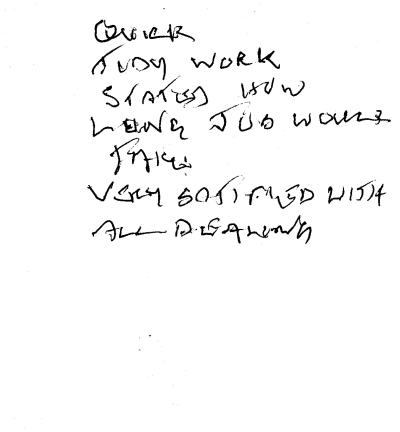 QUICK
TIDY WORK
STATED HOW
LONG JOB WOULD
TAKE
VERY SATISFIED WITH
ALL DEALINGS